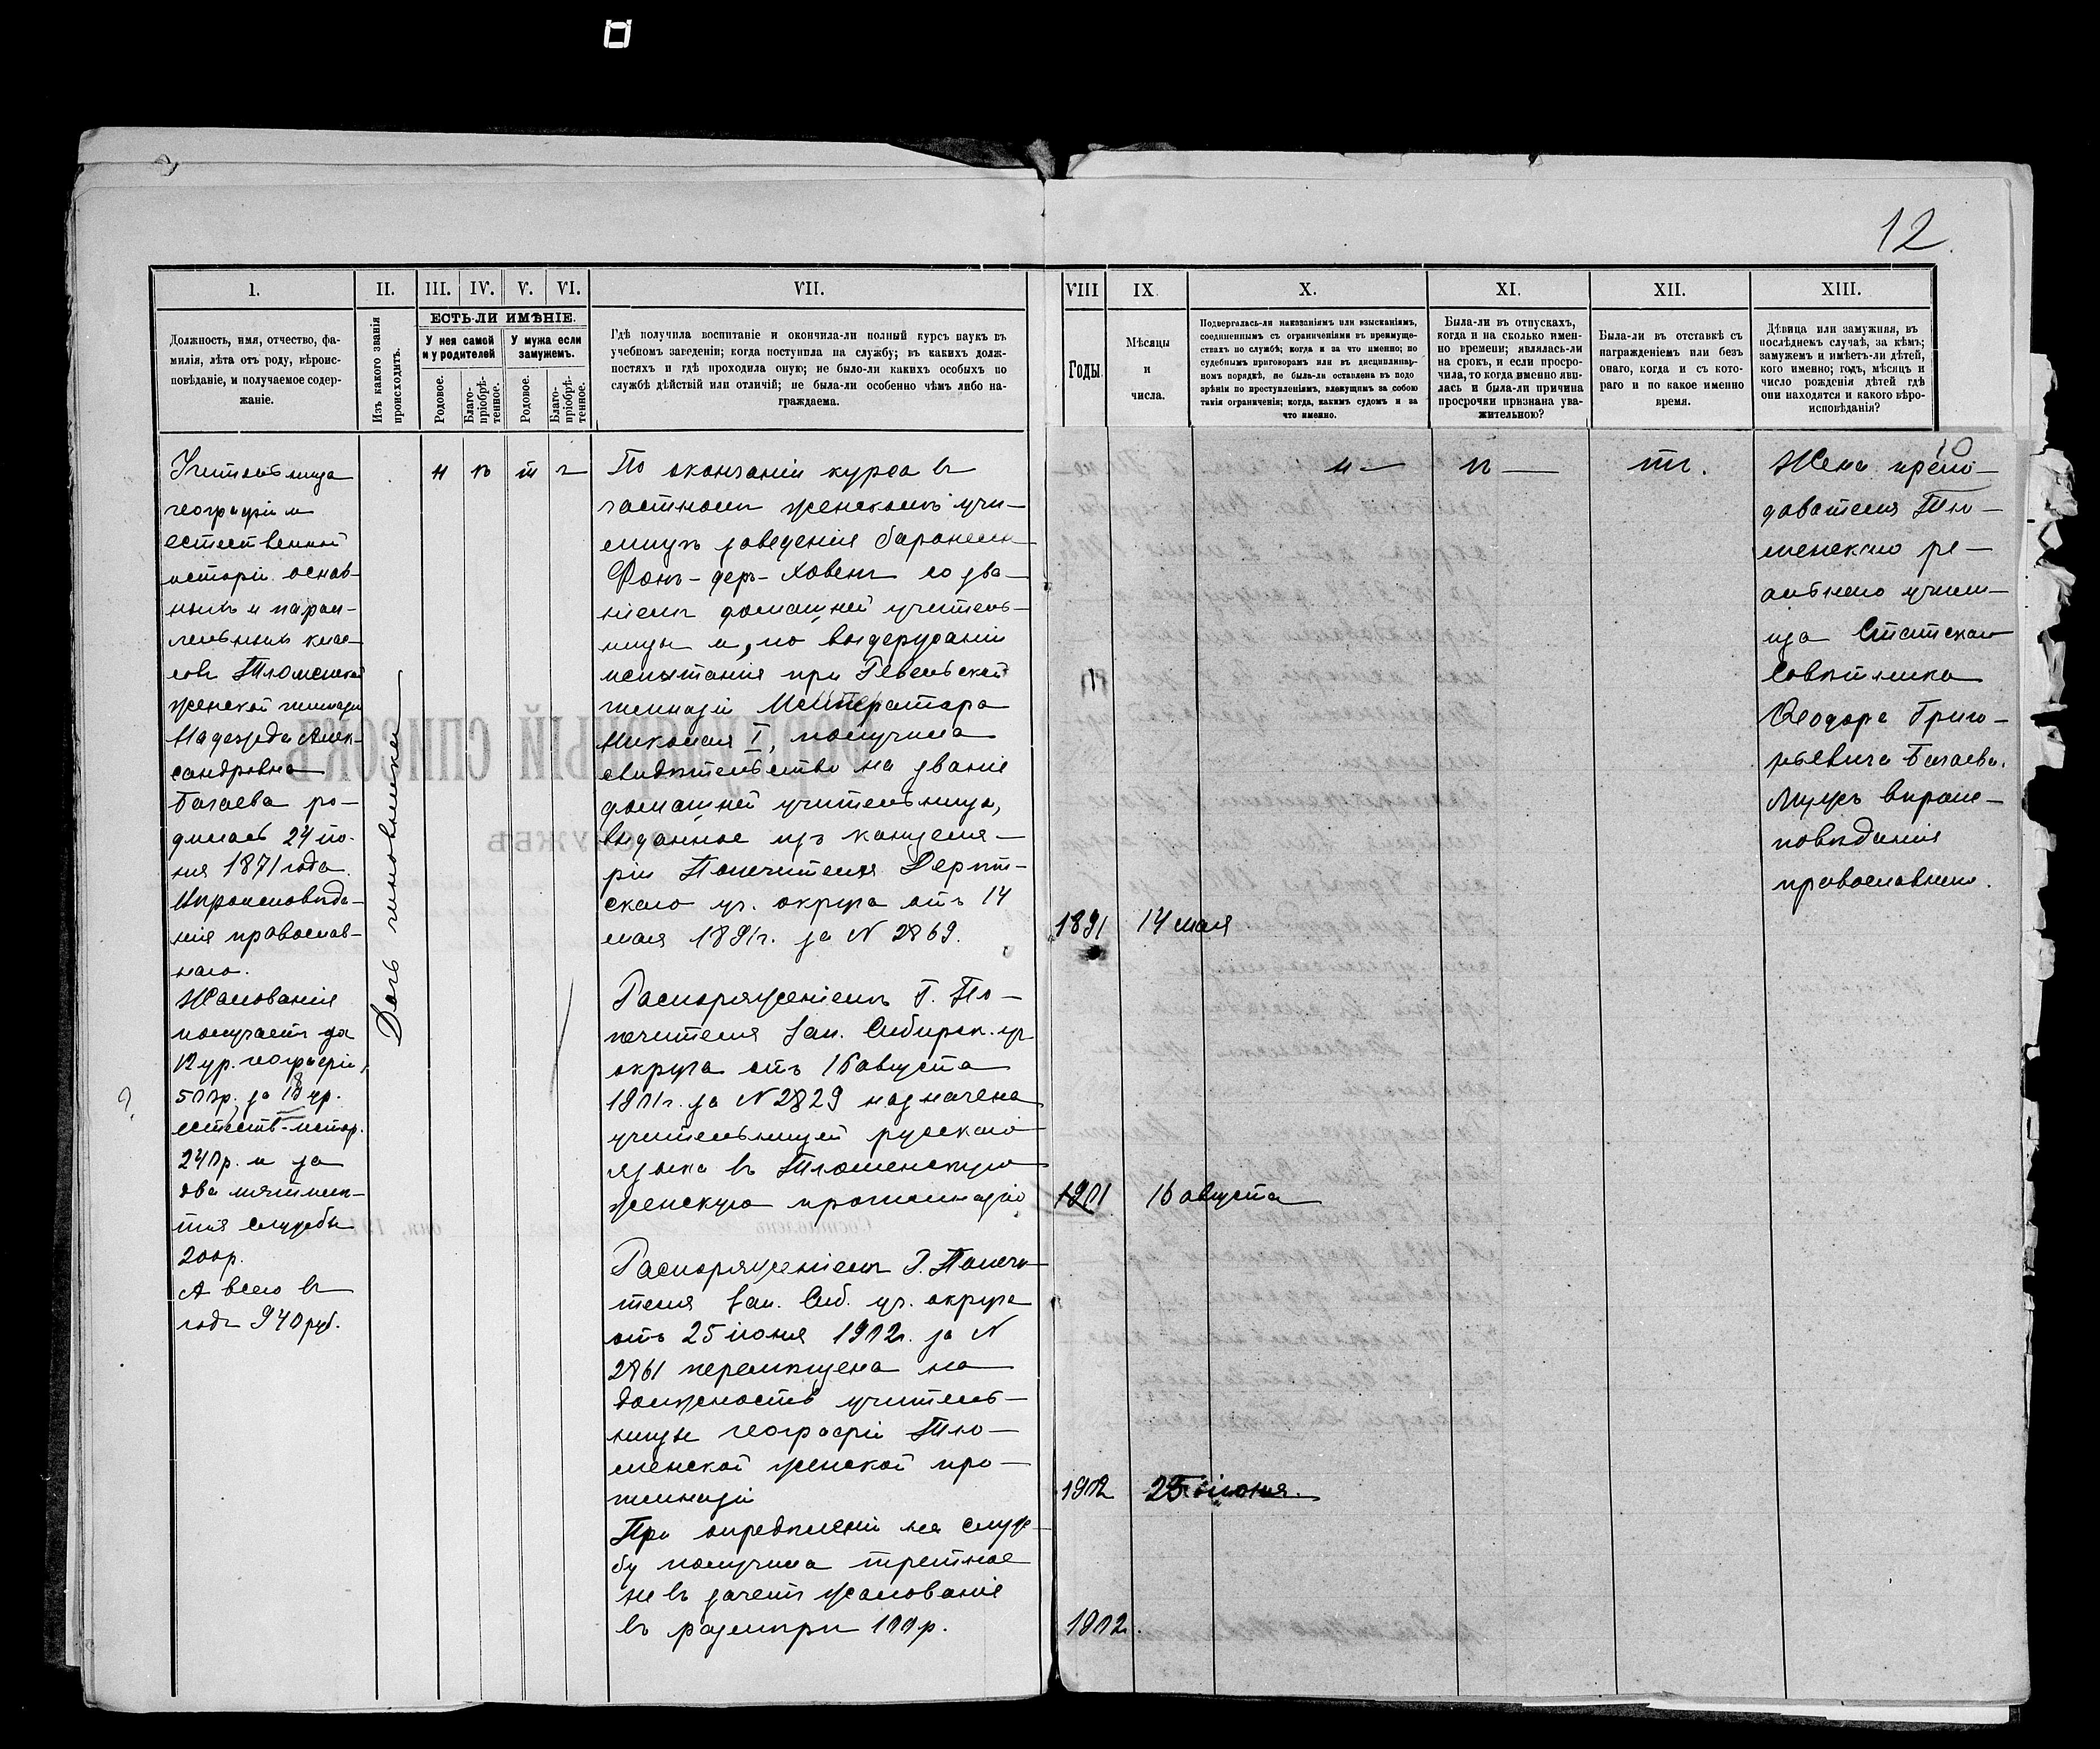 12
I.
II.
III.
IV.
V.
VI.
VII.
VIII
IX.
X.
XI.
XII.
XIII.
Должность, имя, отчество, фа-
милія, лѣта отъ роду, вѣроис-
повѣданіе, и получаемое содер-
жаніе.
Изъ какого званія
происходитъ.
ЕСТЬ-ЛИ ИМѢНІЕ.
У нея самой
и у родителей
У мужа если
замужемъ.
Родовое.
Благо-
пріобрѣ-
тенное.
Родовое.
Благо-
пріобрѣ-
тенное.
Гдѣ получила воспитаніе и окончила-ли полный курсъ наукъ въ
учебномъ заведеніи; когда поступила на службу; въ какихъ долж-
ностяхъ и гдѣ проходила оную; не было-ли какихъ особыхъ по
службѣ дѣйствій или отличій; не была-ли особенно чѣмъ либо на-
граждаема.
Годы.
Мѣсяцы
и
числа.
Подвергалась-ли наказаніямъ или взысканіямъ,
соединеннымъ съ ограниченіями въ преимуще-
ствахъ по службѣ; когда и за что именно; по
судебнымъ приговорамъ или въ дисциплинар-
номъ порядкѣ, не была-ли оставлена въ подо
зрѣніи по преступленіямъ, влекущимъ за собою
такія ограниченія; когда, какимъ судомъ и за
что именно.
Была-ли въ отпускахъ,
когда и на сколько имен-
но времени; являлась-ли
на срокъ, и если просро-
чила, то когда именно яви-
лась и была-ли причина
просрочки признана ува-
жительною?
Была-ли въ отставкѣ съ
награжденіемъ или безъ
онаго, когда и съ кото-
раго и по какое именно
время.
Дѣвица или замужняя, въ
послѣднемъ случаѣ, за кѣмъ;
замужемъ и имѣетъ-ли дѣтей,
кого именно; годъ, мѣсяцъ и
число рожденія дѣтей гдѣ
они находятся и какого вѣро-
исповѣданія?
Учительница
географіи и
естественной
исторіи основ-
ныхъ и парал-
лельныхъ клас-
совъ Тюменской
женской гимназіи
Надежда Алек-
сандровна
Багаева ро-
дилась 24 iю-
ня 1871 года.
Вѣроисповѣда-
нія православ-
наго.
Жалованія
получаетъ за
12 ур. географіи,
500р. за 18 ур.
естеств. истор.
240р. и за
два пятилѣ-
тія службы
200р.
А всего въ
годъ 940 руб.
Дочь чиновника
н ѣ т ъ
По окончаніи курса въ
частномъ женскомъ учи-
лищѣ заведенія баронессы
Фонъ-деръ-Ховенъ со зва-
ніемъ домашней учитель-
ницы и, по выдержаніи
испытанія при Ревельской
гимназіи Императора
Николая I, получила
свидѣтельство на званіе
домашней учительницы,
выданное изъ канцеля-
ріи Попечителя Дерпт-
скаго уч. округа отъ 14
мая 1891г. за N 2869.
1891 14 мая
Распоряженіемъ Г. По-
печителя Зап. Сибирск. уч.
округа отъ 16 августа
1901г. за N 2829 назначена
учительницей русскаго
языка въ Тюменскую
женскую прогимназію
1901 16 августа
Распоряженіемъ Г. Попечи-
теля Зап. Сиб. уч. округа
отъ 25 іюня 1902г. за N
2861 перемѣщена на
должность учитель-
ницы географіи Тю-
менской женской про-
гимназіи
1902 25 іюня.
При опредѣленіи на служ-
бу получила третное
не въ зачетъ жалованіе
въ размѣрѣ 100р.
1902.
н—
ѣ—
тъ.
Жена препо-
давателя Тю-
менскаго ре-
альнаго учили-
ща Статскаго
Совѣтника
Ѳеодора Григо-
рьевича Багаева.
Мужъ вѣроис-
повѣданія
православнаго.